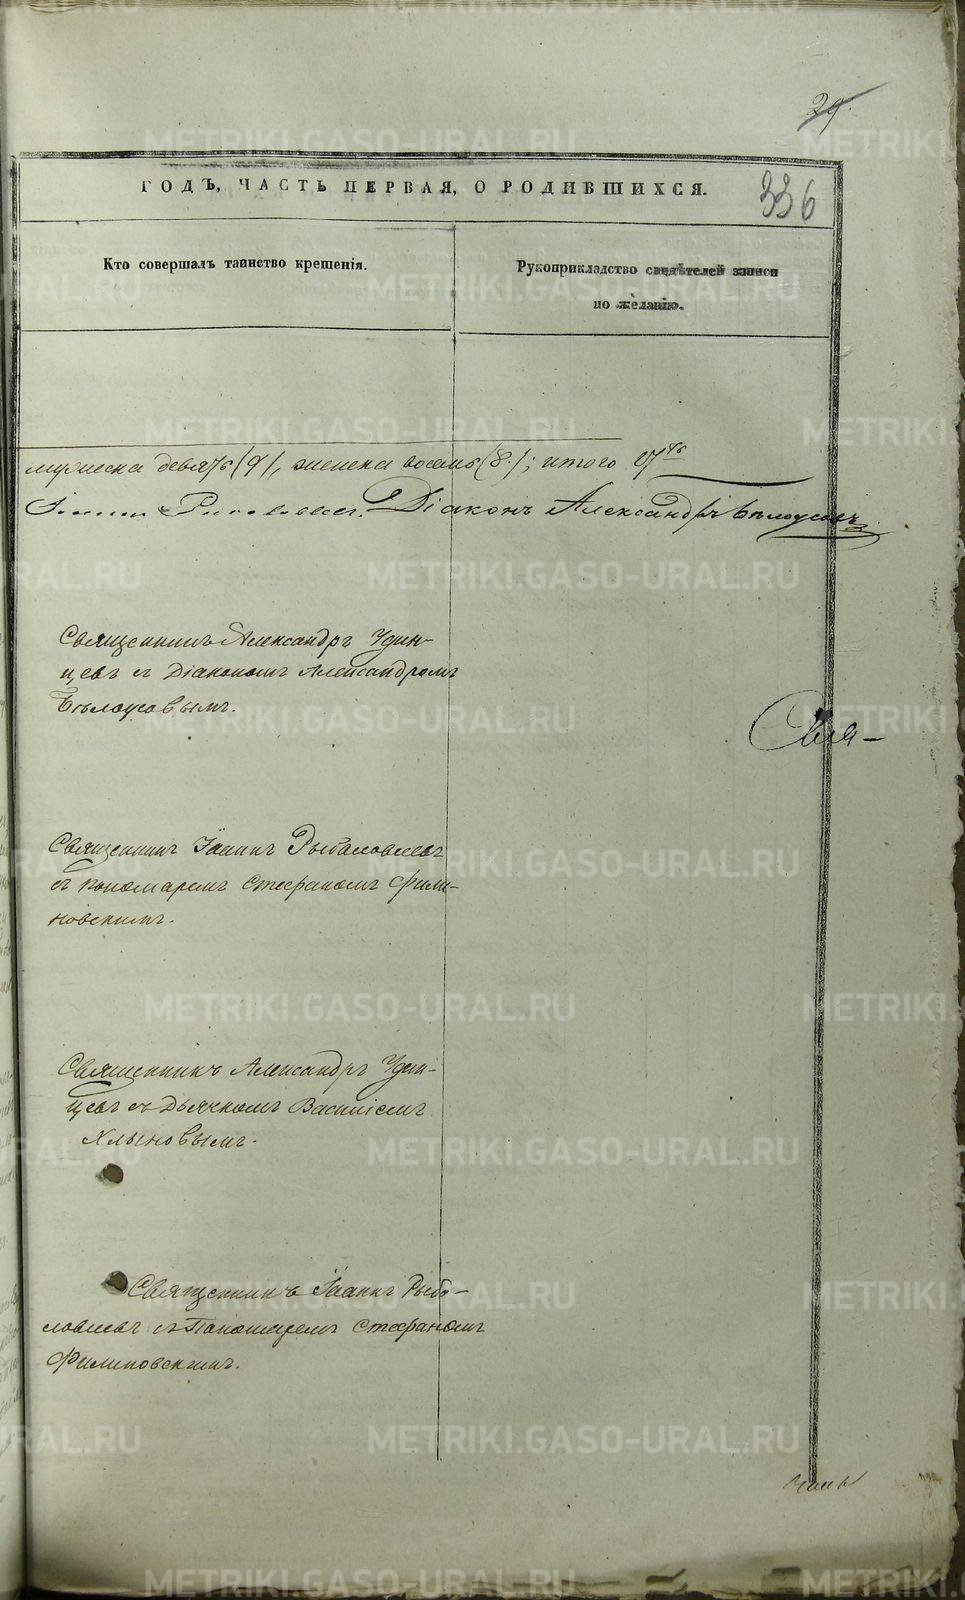 29.
ГОДЪ, ЧАСТЬ ПЕРВАЯ, О РОДИВШИХСЯ.
336
Кто совершалъ таинство крещенія.
Рукоприкладство свидѣтелей записи
по желанію.
мужеска девять (9), женска восемь (8.); итого 17ть
Діаконъ Александръ Бѣлоусовъ
Священникъ Александръ Удин-
цевъ съ Діакономъ Александромъ
Бѣлоусовымъ.
Свя-
Священникъ Іоаннъ Рыболовлевъ
съ пономаремъ Стефаномъ Фили-
повскимъ.
Священникъ Александръ Удин-
цевъ съ Дьячкомъ Василіемъ
Хлыновымъ.
Священникъ Іоаннъ Рыбо-
ловлевъ съ Пономаремъ Стефаномъ
Филиповскимъ.
METRIKI.GASO-URAL.RU